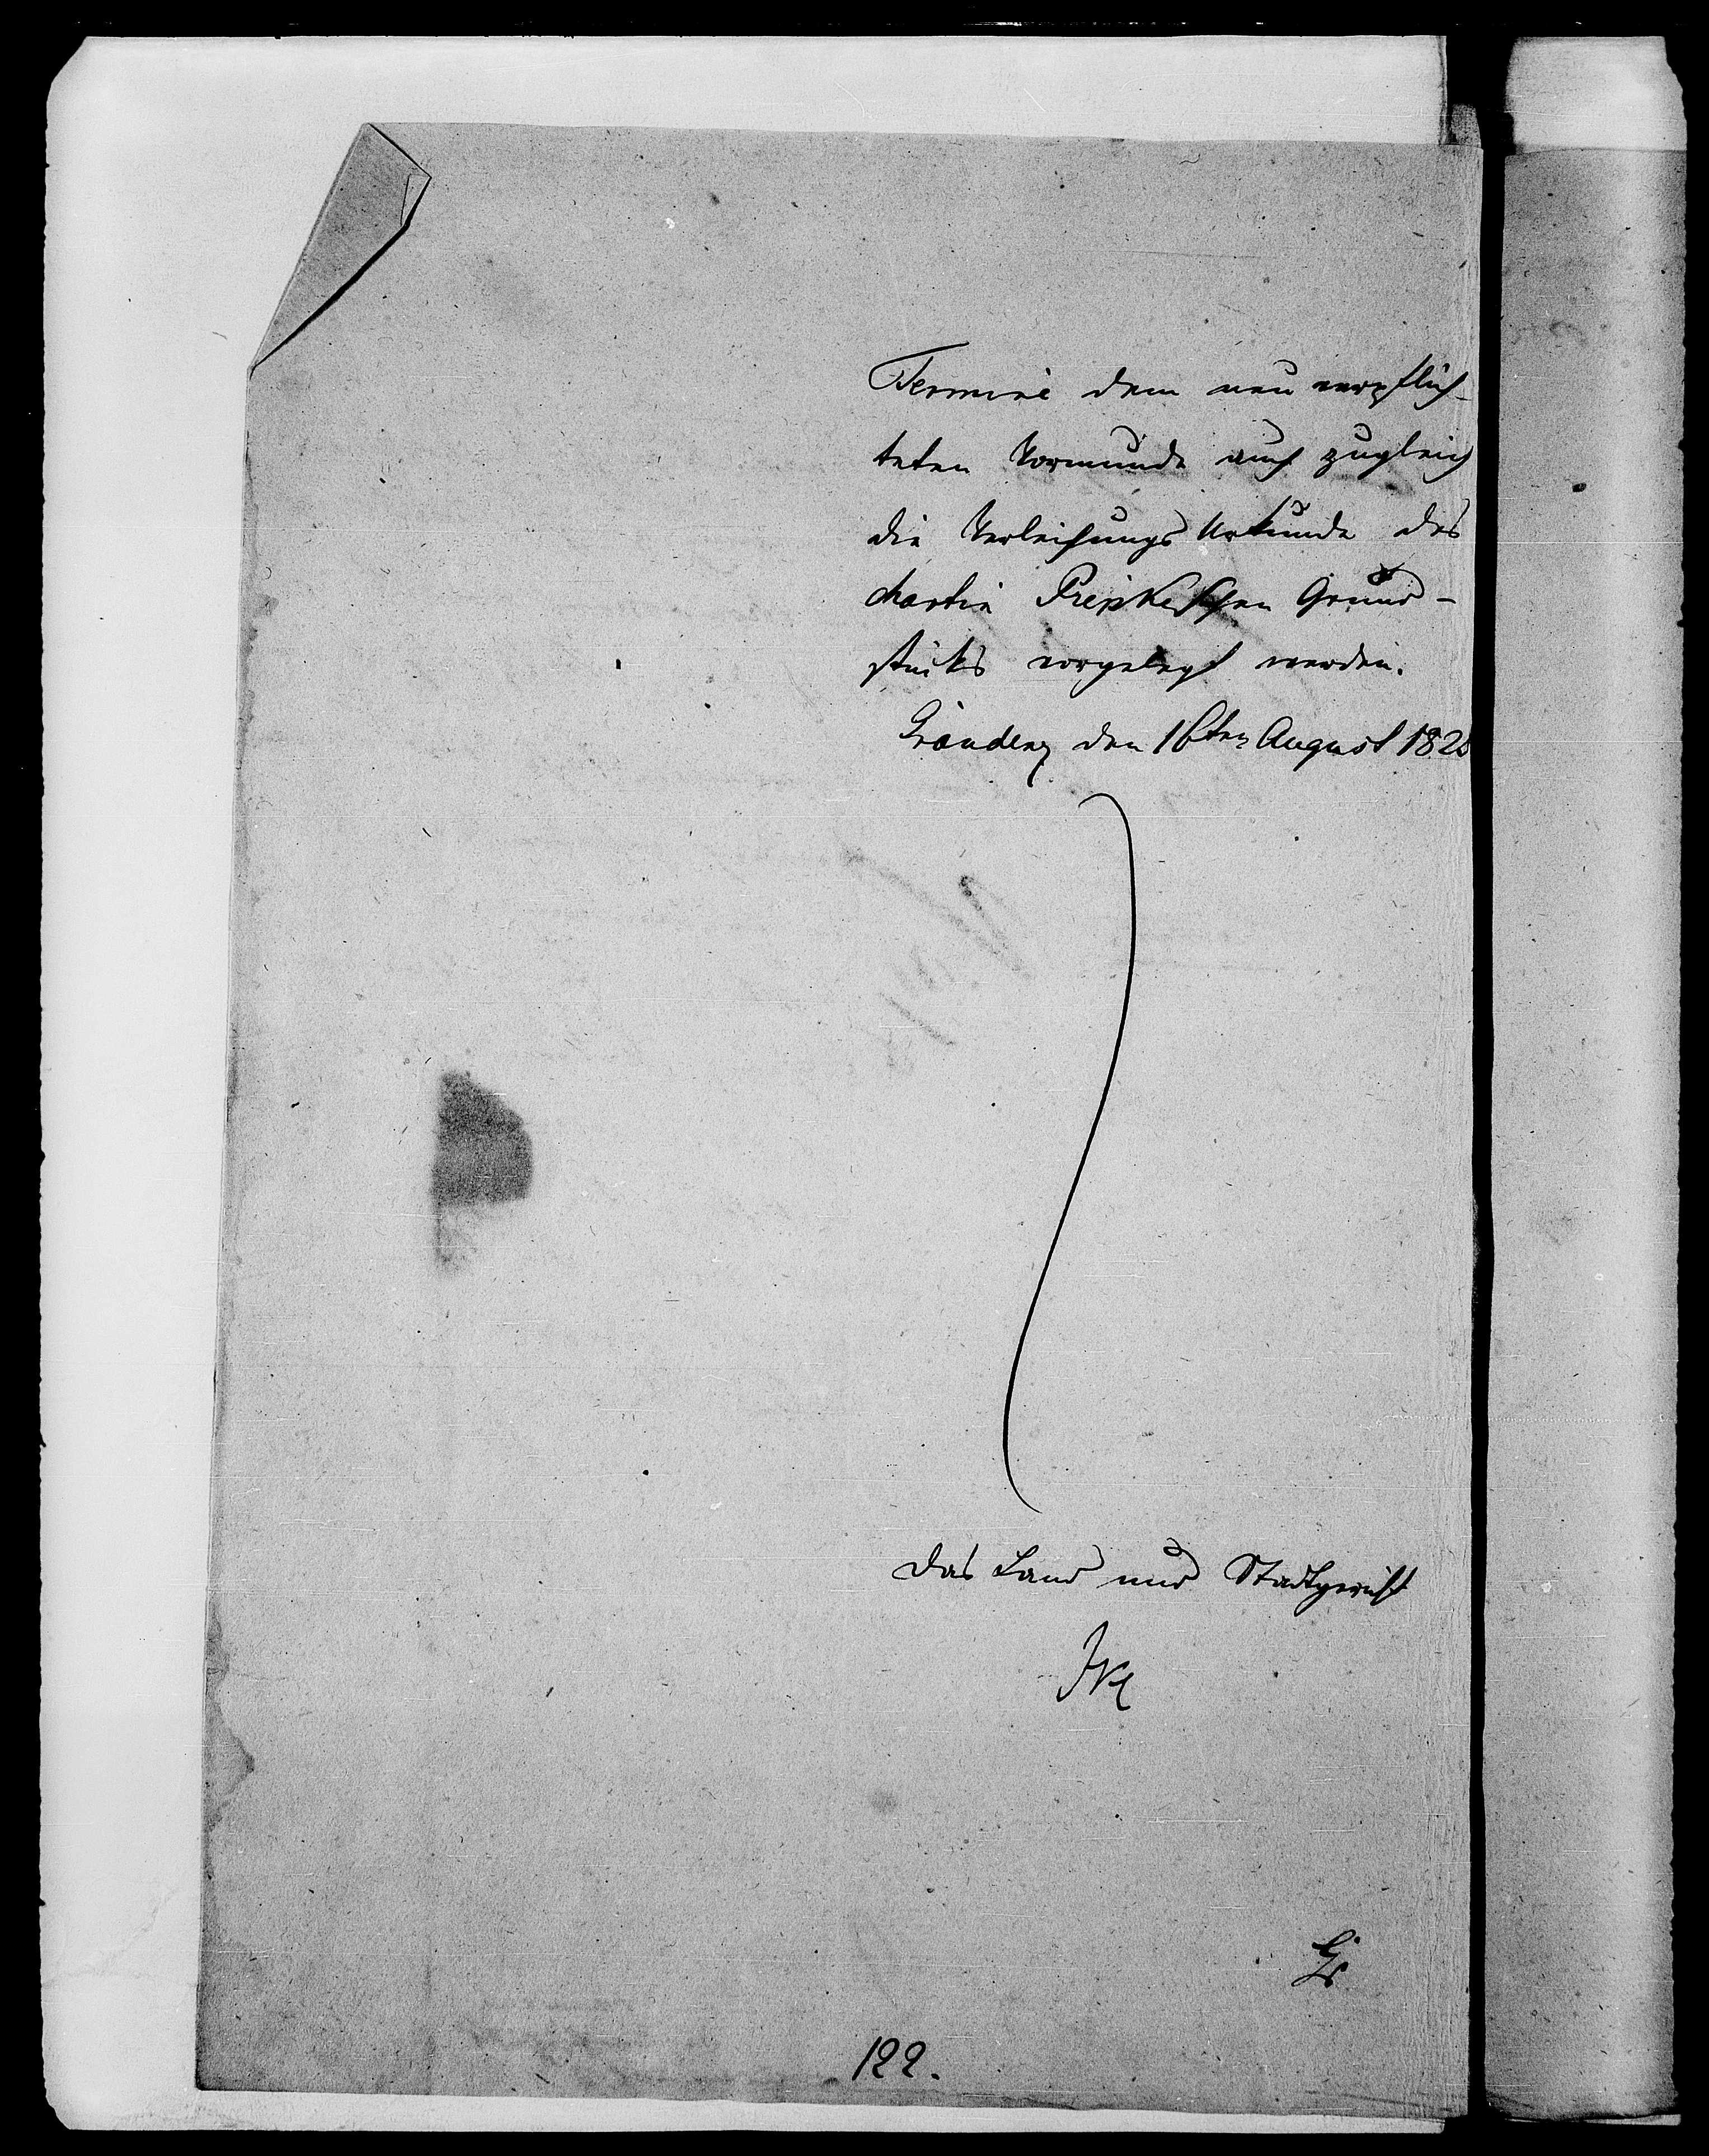 Termine dem neu verpflich-
teten Vormunde auch zugleich
die Verleihungs Urkunde des
Martin Piepkeschen Grund-
stücks vorgelegt werden.
Graudenz den 16ten August 1828
Das Land und Stadtgericht
122.